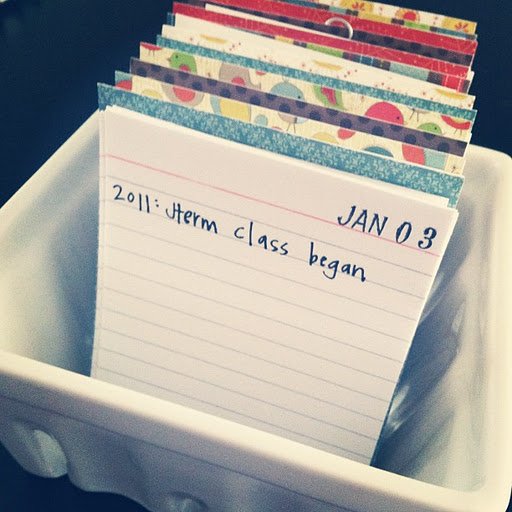 JAN 03
2011: Jterm class began